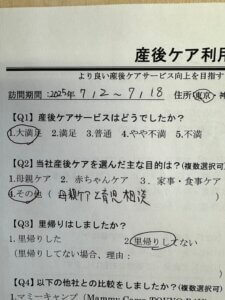 産後ケア利用
より良い産後ケアサービス向上を目指す
訪問期間：2025年 7/2 〜 7/18 住所 東京・神
【Q1】産後ケアサービスはどうでしたか？
1.大満足 2.満足 3.普通 4.やや不満 5.不満
【Q2】当社産後ケアを選んだ主な目的は？(複数選択可)
1.母親ケア 2. 赤ちゃんケア 3. 家事・食事ケア
4.その他 ( 母親ケアと育児相談
【Q3】里帰りはしましたか？
1.里帰りした 2.里帰りしてない
(里帰りしてない場合、理由：
【Q4】以下の他社との比較をしましたか？(複数選択可)
1.マミーキャンプ